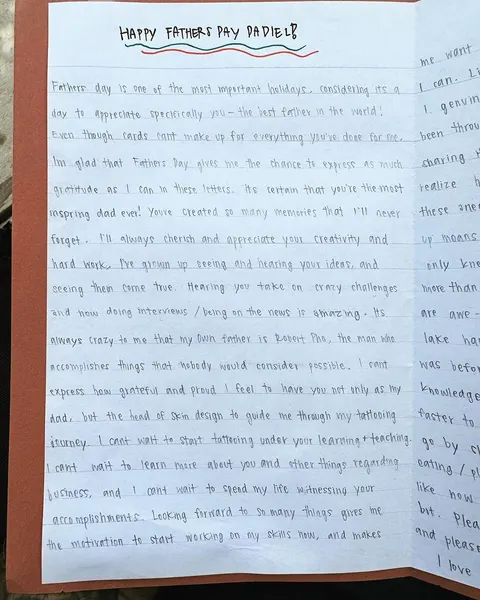 HAPPY FATHERS DAY DADIELB
Fathers day is one of the most important holidays. considering its a
day to appreciate specifically you - the best father in the world!
Even though cards cant make up for everything you've done for me.
Im glad that Fathers Day gives me the chance to express as much
gratitude as I can in these letters. its certain that you're the most
inspring dad ever! Youve created so many memories that I'll never
forget. I'll always cherish and appreciate your creativity and
hard work. I've grown up seeing and hearing your ideas, and
seeing them come true. Hearing you take on crazy challenges
and now doing interviews / being on the news is amazing. Its
always crazy to me that my own father is Robert Pho, the man who
accomplishes things that nobody would consider possible. I cant
express how grateful and proud I feel to have you not only as my
dad, but the head of skin design to guide me through my tattooing
journey. I cant wait to start tattooing under your learning + teaching.
I cant wait to learn more about you and other things regarding
business, and I cant wait to spend my life witnessing your
accomplishments. Looking forward to so many things gives me
the motivation to start working on my skills now, and makes
me want
I can. Li
I genuin
been throu
sharing t
realize h
these one
up moans
only kne
more than
are awe-
lake ha
was befor
knowledge
faster to
go by s
eating / pl
like how
bit. Plea
and please
I love